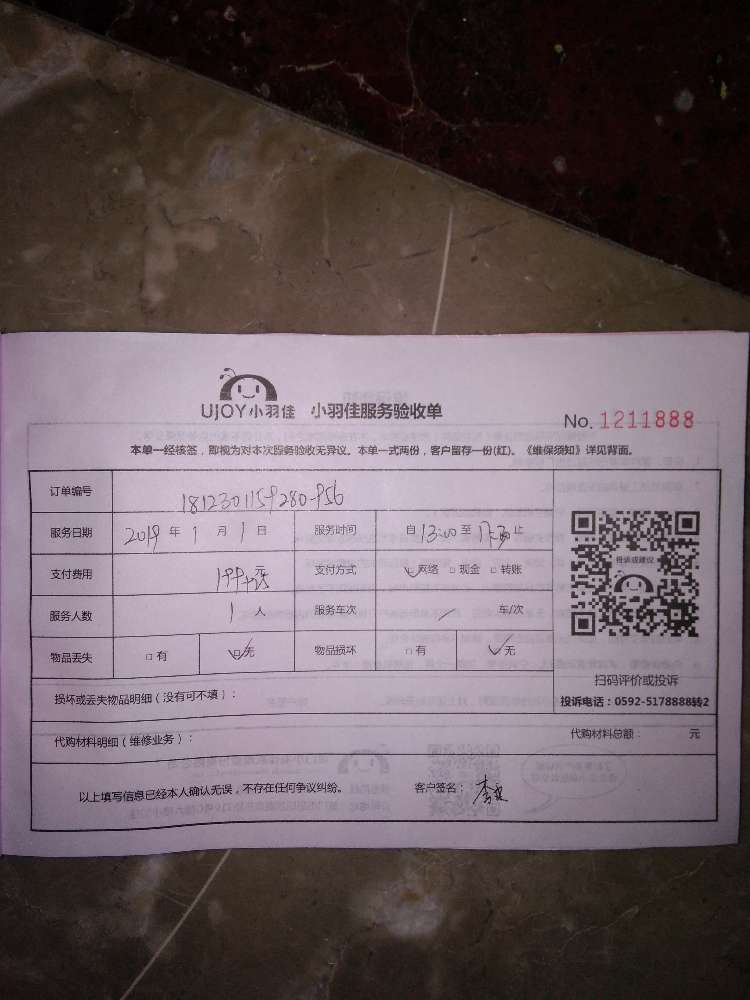 UJOY小羽佳 小羽佳服务验收单
No. 1211888
本单一经核签，即视为对本次服务验收无异议。本单一式两份，客户留存一份(红)。《维保须知》详见背面。
订单编号 1812301159280-956
服务日期 2019 年 1 月 1 日 服务时间 自 13:00 至 17:30 止
支付费用 199+25 元 支付方式 ☑网络 □现金 □转账
服务人数 1 人 服务车次 / 车/次
物品丢失 □有 ☑无 物品损坏 □有 ☑无
投诉或建议
扫码评价或投诉
投诉电话：0592-5178888转2
损坏或丢失物品明细（没有可不填）：
代购材料明细（维修业务）： 代购材料总额： 元
以上填写信息已经本人确认无误，不存在任何争议纠纷。 客户签名： 李